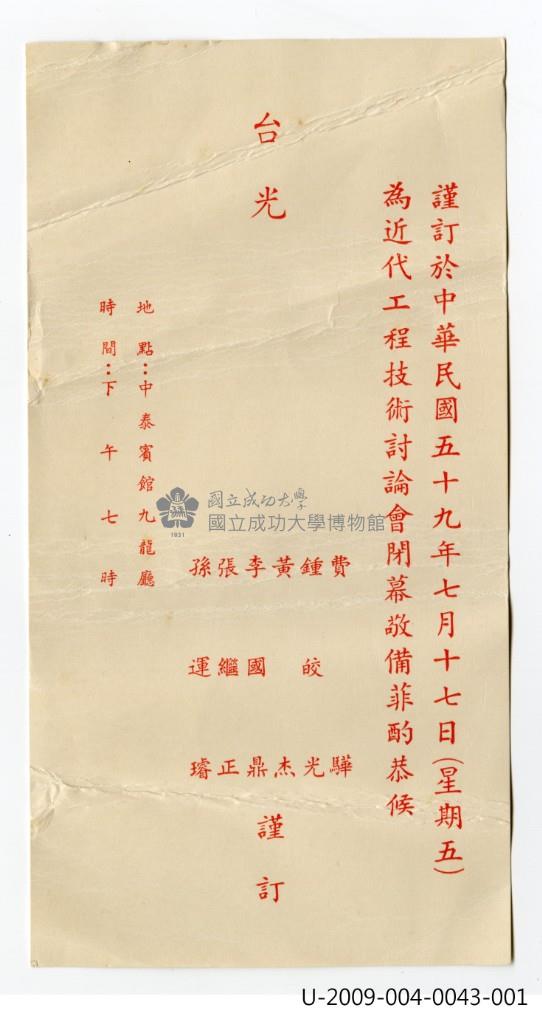 謹訂於中華民國五十九年七月十七日(星期五)
為近代工程技術討論會閉幕敬備菲酌恭候
台光
費驊
鍾皎光
黃杰
李國鼎
張繼正
孫運璿
謹訂
地點:中泰賓館九龍廳
時間:下午七時
國立成功大學
國立成功大學博物館
1931
U-2009-004-0043-001